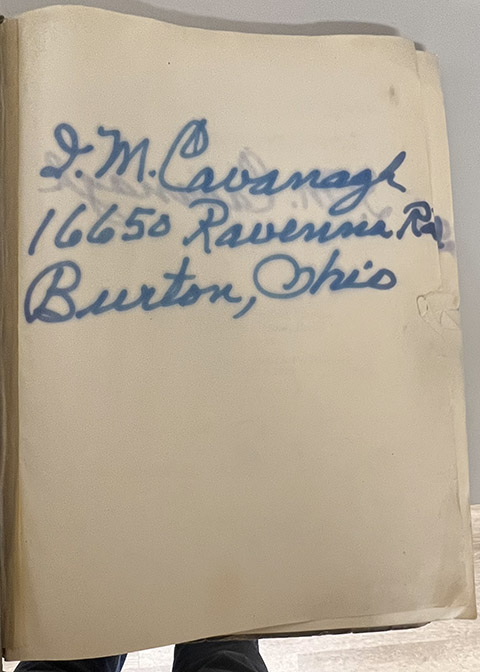 I. M. Cavanagh
16650 Ravenna Rd.
Burton, Ohio